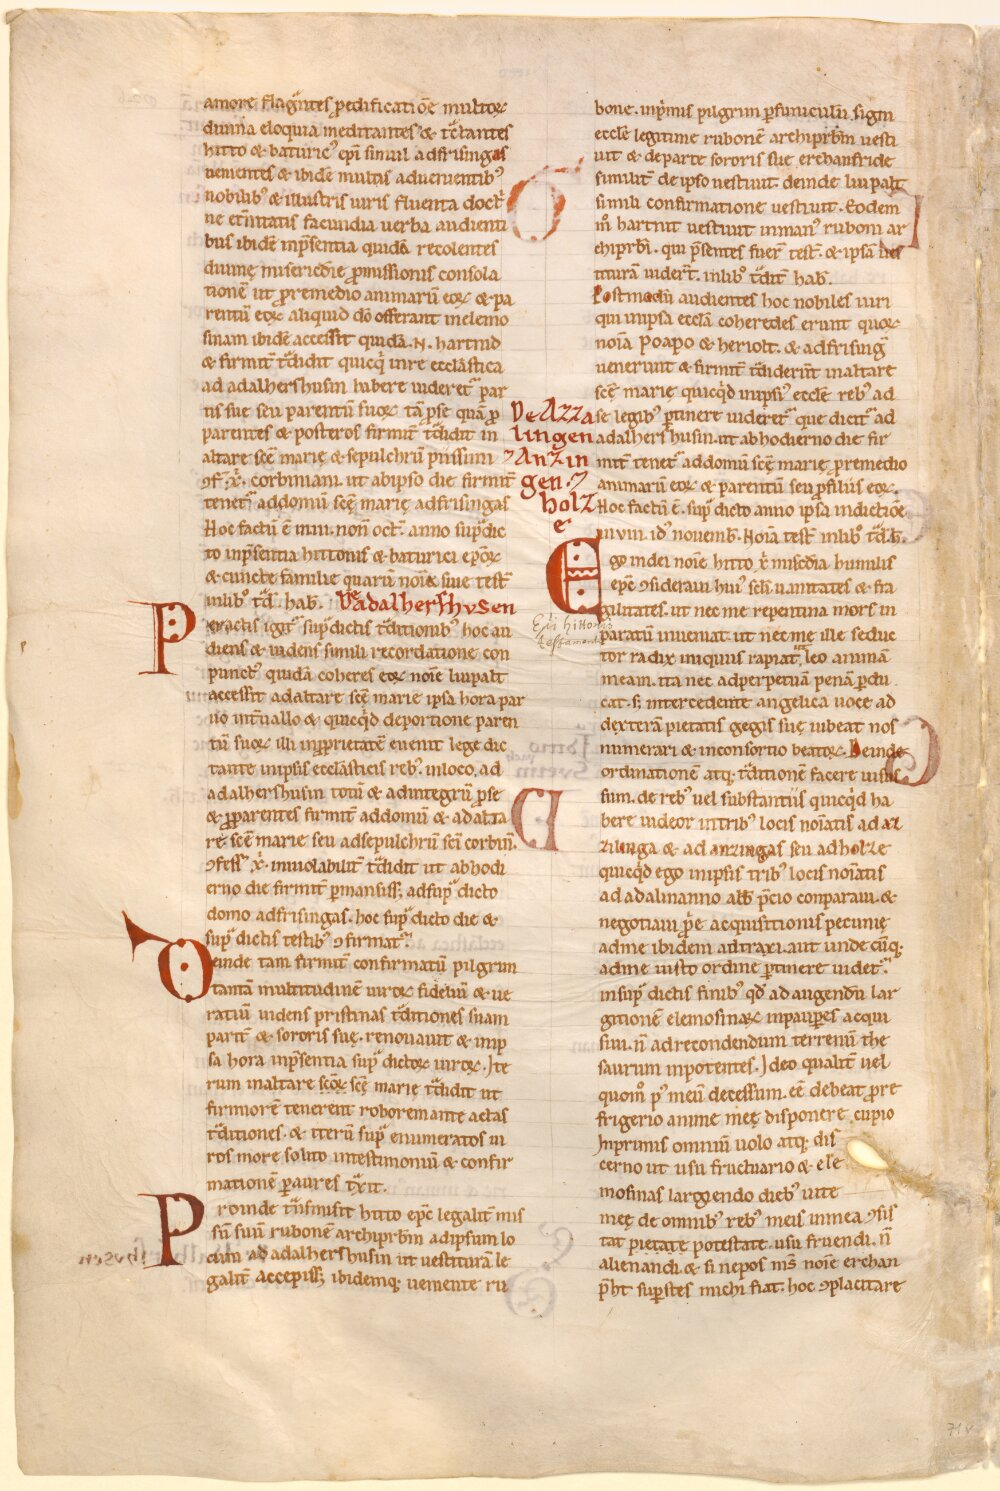 amore flagntes pedificatiōe multoꝝ
diuina eloquia meditantes & tctantes
hitto & baturic᾽ epi simul adfrisingas
uenientes & ibidē multis aduenientib᾽
nobilib᾽ & illustris uiris fluenta doct
ne etnitatis facundia uerba audienti
bus ibidē inpsentia quidā recolentes
diuinę misericdię pmissionis consola
tionē ut premedio animarū eoꝝ & pa
rentū eoꝝ aliquid dō offerant in elemo
sinam ibidē accessit quidā .N. hartnid
& firmit tdidit quicqd inre ecclastica
ad adalhershusin habere uideret par
tis sue seu parentū suoꝝ tā pse quā p
parentes & posteros firmit tdidit in
altare scē marię & sepulchrū piissimi
ꝯf. x̄. corbiniani. ut abipso die firmit
tenet addomū scē marię adfrisingas
Hoc factū ē .iiii. non oct. anno supdic
to inpsentia hittonis & baturici epoꝝ
& cunctę familie quarū noīa siue test
inlib᾽ td. hab. De adalhershvsen
Peractis igit supdictis tditionib᾽ hoc au
diens & uidens simili recordatione con
punct᾽ quidā coheres eoꝝ noīe liupalt
accessit adaltare scē marie ipsa hora par
uo intuallo & quicqd deportione paren
tū suoꝝ illi inpprietatē euenit lege dic
tante inipsis ecclasticis reb᾽. inloco. ad
adalhershusin totū & adintegrū pse
& pparentes firmit addomū & adalta
re scē marie seu adsepulchrū sci corbini.
ꝯfess. x̄. inuiolabilit tdidit ut abhodi
erno die firmit pmansiss; adsup dicto
domo adfrisingas. hoc sup dicto die &
sup dictis testib᾽ ꝯfirmat.
Deinde tam firmit confirmatū piligrim
tantā multitudinē uiroꝝ fideliū & ue
ratiū uidens pristinas tditiones suam
partē & sororis suę. renouauit & inip
sa hora inpsentia sup dictoꝝ uiroꝝ. Ite
rum inaltare scoꝝ scē marie tdidit ut
firmiorē tenerent roborem ante actas
tditiones. & iterū sup enumeratos ui
ros more solito intestimoniū & confir
mationē paures txit.
Proinde tnsmisit hitto epc legalit mis
sū suū rubonē archiprbm adipsum lo
cum ad adalhershusin ut uestiturā le
galit accepiss; ibidemq; ueniente ru
bone. inpmis piligrim pfuniculū signi
ecclē legitime rubonē archiprbm uesti
uit & departe sororis sue erchanfride
similit de ipso uestiuit. deinde liupalt
simili confirmatione uestiuit. Eodem
m̄ hartnit uestiuit inman᾽ ruboni ar
chiprbi. qui psentes fuer test. & ipsā ues
titurā uidert. inlib᾽ tdit hab.
Postmodū audientes hoc nobiles uiri
qui inipsa ecclā coheredes erant quoꝝ
noīa Poapo & heriolt. & adfrising
uenerunt & firmit tdiderūt inaltare
scē marię quicqd inipsi᾽ ecclē reb᾽ ad
se legib᾽ ptinere uideret que dicit ad
adalhershusin. ut abhodierno die fir
mit tenet addomū scē marię premedio
animarū eoꝝ & parentū seu pfilius eoꝝ.
Hoc factū ē. sup dicto anno ipsa indictiōe
in viii. id᾽ nouemb. Noīa test inlib᾽ td. h.
De Azza
lingen
⁊ Anzin
gen. ⁊
holz
e
Ego indei noīe hitto x̄ misedia humilis
epc ꝯsideraui hui᾽ scli uanitates & fra
gilitates. ut nec me repentina mors in
paratū inueniat. ut nec me ille seduc
tor radix iniquus rapiat leo animā
meam. ita nec adperpetuā penā pdu
cat. s; intercedente angelica uoce ad
dexterā pietatis gegis suę iubeat nos
numerari & inconsortio beatoꝝ. Deinde
ordinationē atq; tditionē facere uisus
sum. de reb᾽ uel substantiis quicqd ha
bere uideor intrib᾽ locis noīatis ad az
zilinga & ad anzingas seu adholze
quicqd ego inipsis trib᾽ locis noīatis
ad adalmanno abb pcio conparaui. &
negotiaui pe acquisitionis pecunię
adme ibidem adtraxi. aut unde cūq;
adme iusto ordine ptinere uidet.
insup dictis finib᾽ qd ad augendū lar
gitionē elemosinaꝝ inpaupes acqui
siui. n̄ adrecondendum terrenū the
saurum inpotentes. Ideo qualit uel
quom p᾽ meū decessum. eē debeat pre
frigerio anime meę disponere cupio
Inprimis omniū uolo atq; dis
cerno ut usu fructuario & ele
mosinas largiendo dieb᾽ uite
meę de omnib᾽ reb᾽ meis inmea ꝯsis
tat pietate potestate usu fruendi. n̄
alienandi & si nepos ms noīe erchan
pht supstes michi fiat. hoc ꝯplacitare
Epi hittonis
testamentū
71v